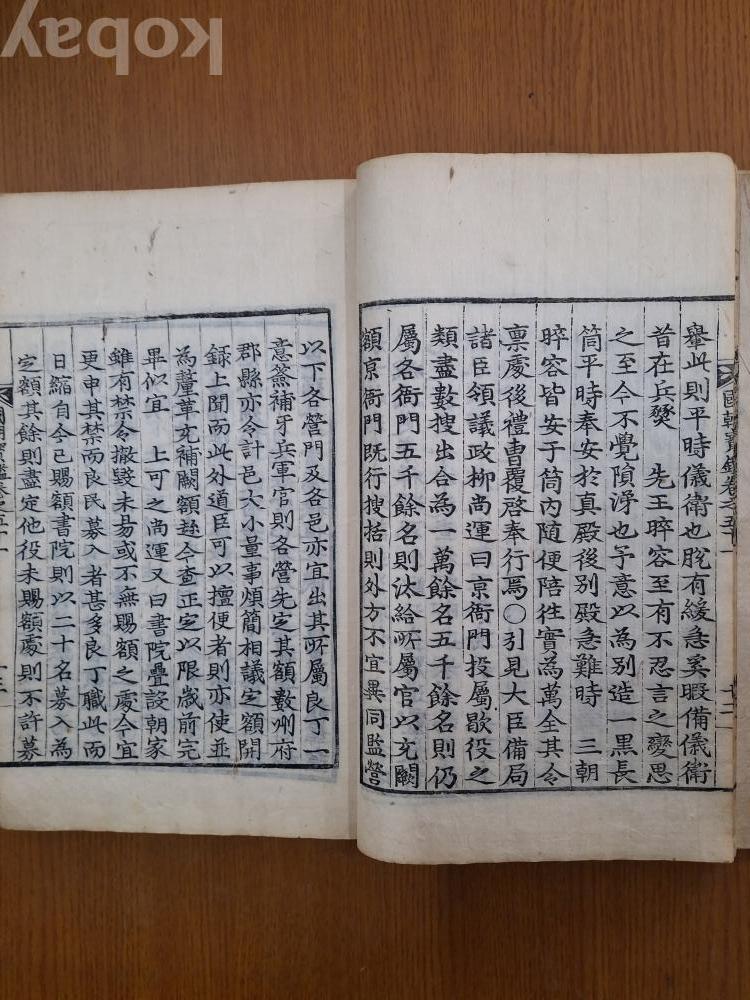 kobay
舉此則平時儀衛也脫有緩急奚暇備儀衛
昔在兵燹 先王睟容至有不忍言之變思
之至今不覺隕涕也予意以為別造一黑長
筒平時奉安於真殿後別殿急難時 三朝
睟容皆安于筒內隨便陪往實為萬全其令
禀處後禮曹覆啓奉行焉○引見大臣備局
諸臣領議政柳尚運曰京衙門投屬歇役之
類盡數搜出合為一萬餘名五千餘名則仍
屬各衙門五千餘名則汰給所屬官以充闕
額京衙門既行搜括則外方不宜異同監營
國朝寶鑑卷之五十一
以下各營門及各邑亦宜出其所屬良丁一
意簽補牙兵軍官則各營先定其額數州府
郡縣亦令計邑大小量事煩簡相議定額開
錄上聞而此外道臣可以擅便者則亦使並
為釐革充補闕額趁今查正定以限歲前完
畢似宜 上可之尚運又曰書院疊設朝家
雖有禁令撤毀未易或不無賜額之處今宜
更申其禁而良民募入者甚多良丁職此而
日縮自今已賜額書院則以二十名募入為
定額其餘則盡定他役未賜額處則不許募
國朝寶鑑卷之五十一